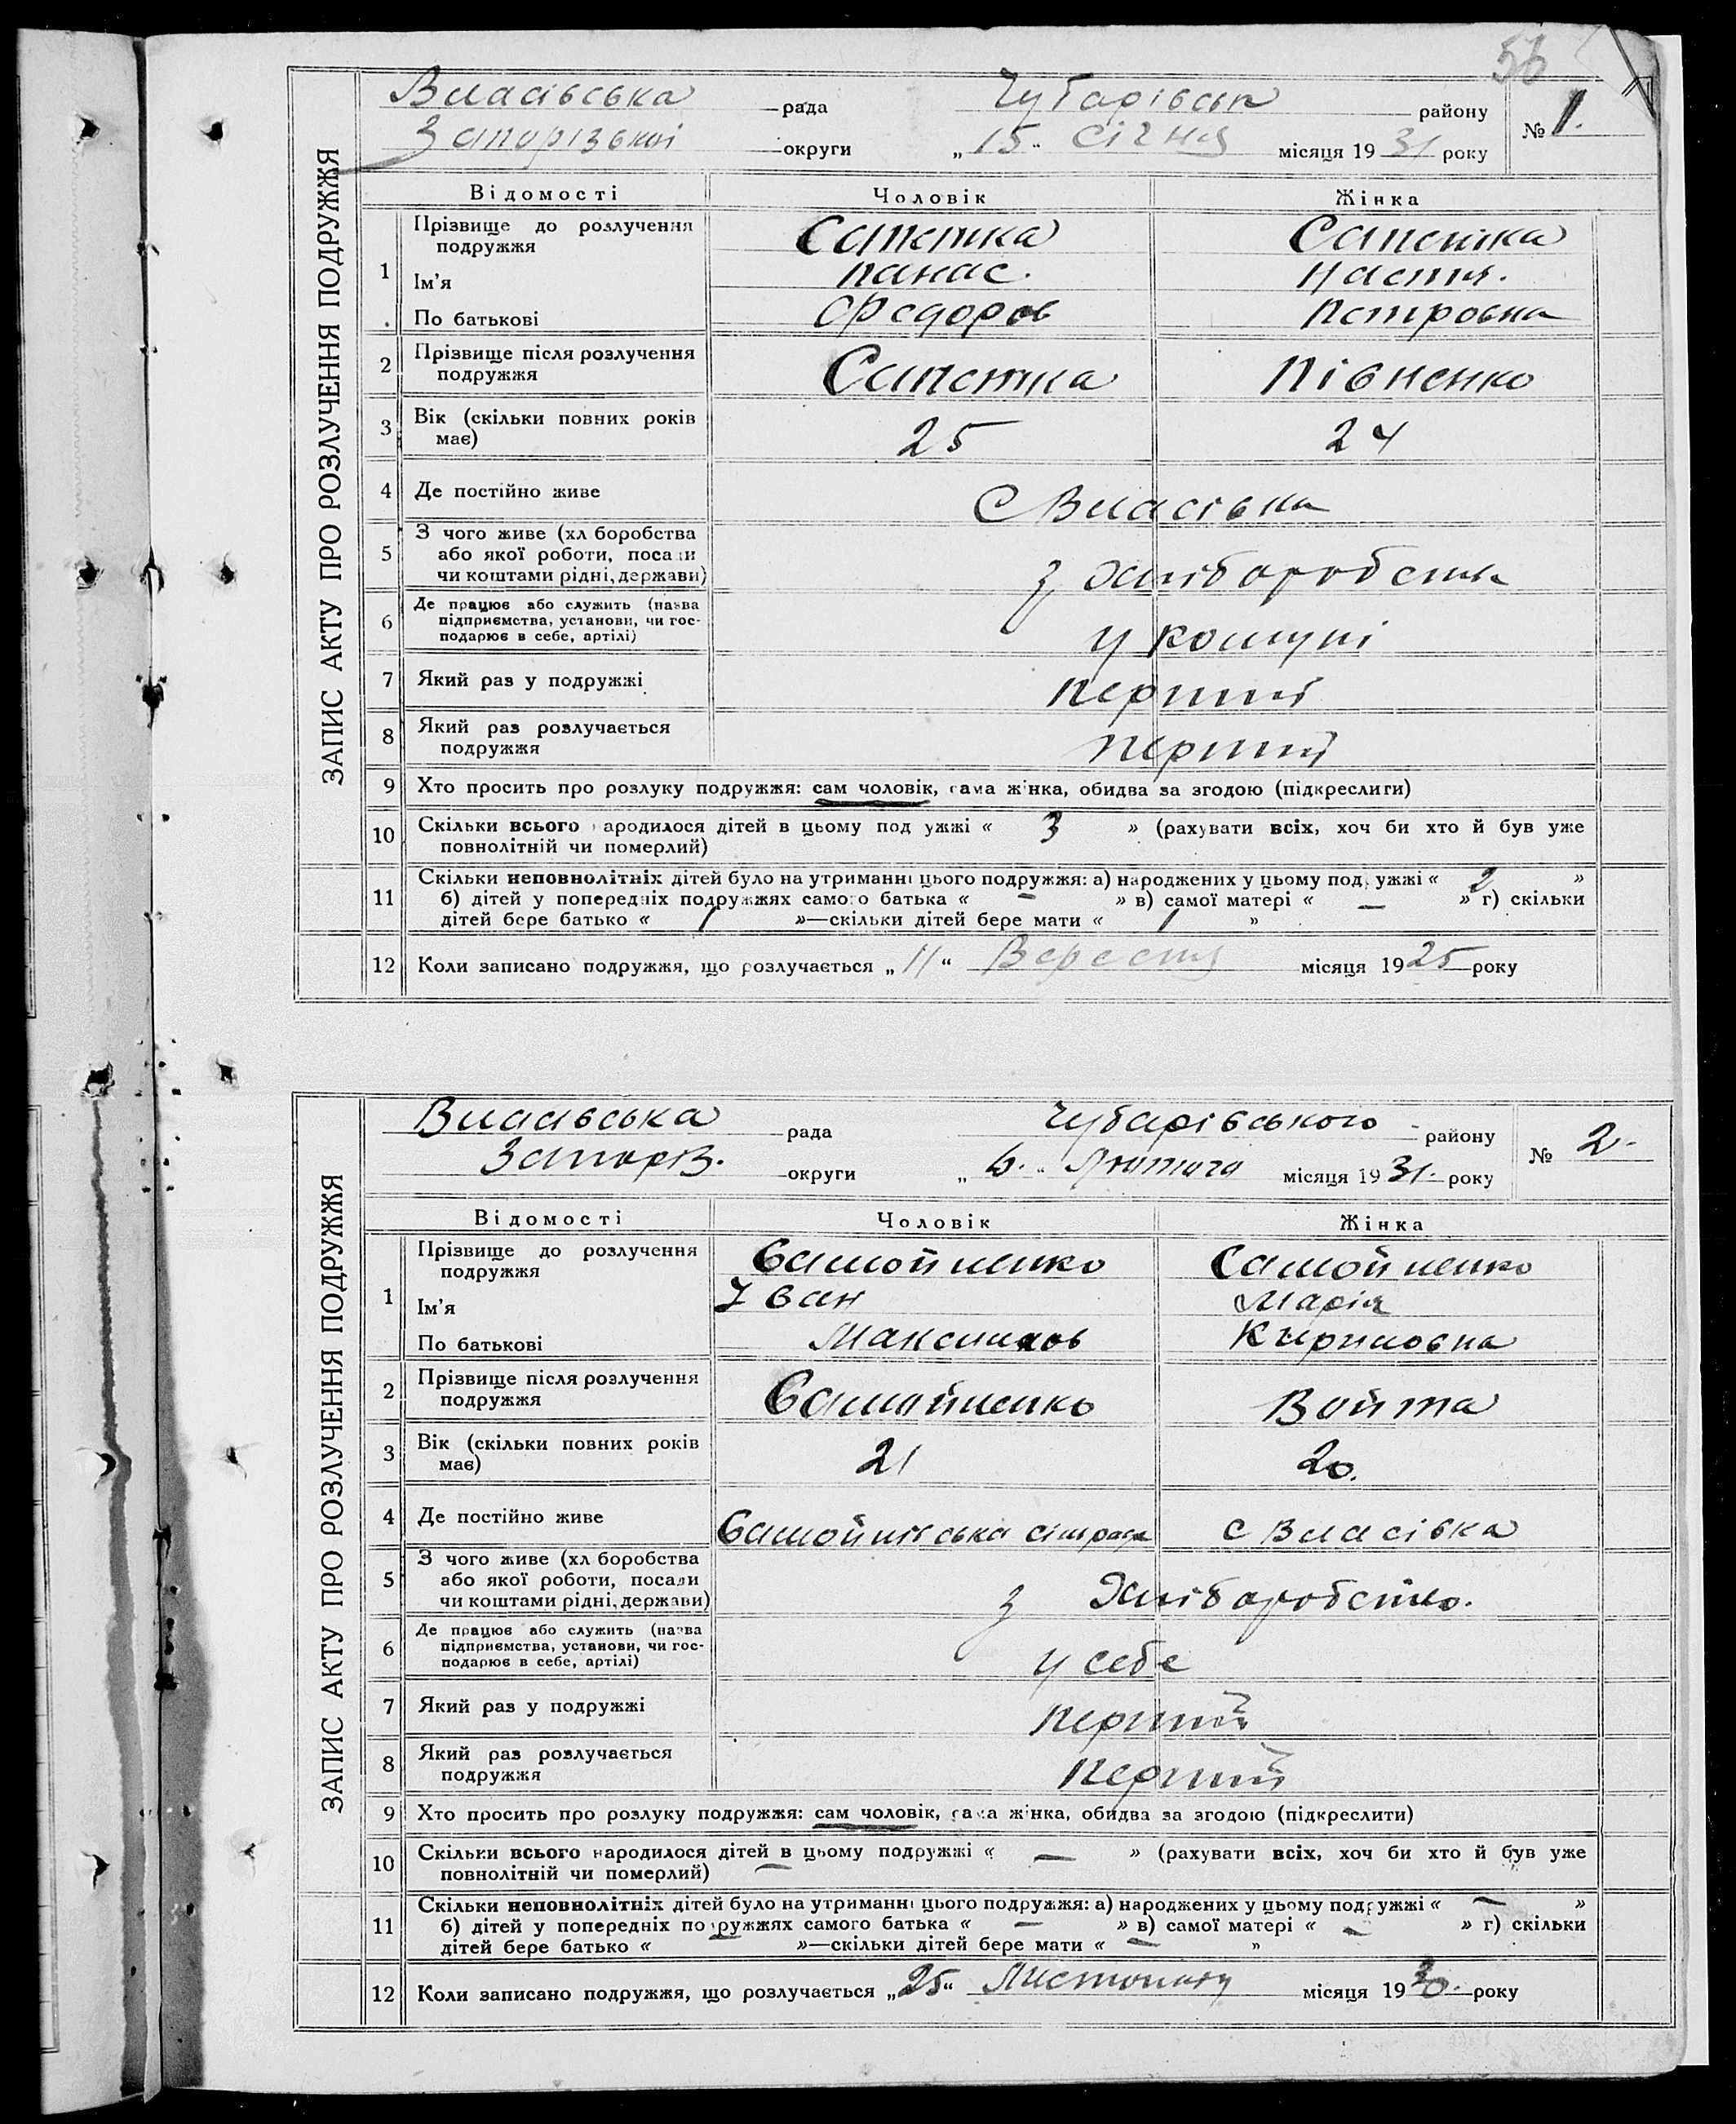 56
ЗАПИС АКТУ ПРО РОЗЛУЧЕННЯ ПОДРУЖЖЯ
Власівська рада Чубарівськ району
Запорізької округи „15“ січня місяця 1931 року
№ 1.
Відомості Чоловік Жінка
1 Прізвище до розлучення подружжя Сапетка Сапетка
Ім'я панас. Настя.
По батькові Федоров Петровна
2 Прізвище після розлучення подружжя Сапетка Півненко
3 Вік (скільки повних років має) 25 24
4 Де постійно живе С Власівка
5 З чого живе (хл боробства
або якої роботи, посади
чи коштами рідні, держави) з хліборобства
6 Де працює або служить (назва
підприємства, установи, чи гос-
подарює в себе, артілі) у комуні
7 Який раз у подружжі перший
8 Який раз розлучається подружжя перший
9 Хто просить про розлуку подружжя: сам чоловік, сама жінка, обидва за згодою (підкреслити)
10 Скільки всього народилося дітей в цьому подружжі « 3 » (рахувати всіх, хоч би хто й був уже
повнолітній чи померлий)
11 Скільки неповнолітніх дітей було на утриманні цього подружжя: а) народжених у цьому подружжі « 2 »
б) дітей у попередніх подружжях самого батька « — » в) самої матері « — » г) скільки
дітей бере батько « 1 »—скільки дітей бере мати « 1 »
12 Коли записано подружжя, що розлучається „11“ Вересня місяця 1925 року
ЗАПИС АКТУ ПРО РОЗЛУЧЕННЯ ПОДРУЖЖЯ
Власівська рада Чубарівського району
Запоріз. округи „6.“ Лютого місяця 1931. року
№ 2.
Відомості Чоловік Жінка
1 Прізвище до розлучення подружжя Самойленко Самойленко
Ім'я Іван Марія
По батькові Максимов Кириловна
2 Прізвище після розлучення подружжя Самойленко Войта
3 Вік (скільки повних років має) 21 20.
4 Де постійно живе Самойлівська сільрада с Власівка
5 З чого живе (хл боробства
або якої роботи, посади
чи коштами рідні, держави) з Хліборобство.
6 Де працює або служить (назва
підприємства, установи, чи гос-
подарює в себе, артілі) у себе
7 Який раз у подружжі перший
8 Який раз розлучається подружжя перший
9 Хто просить про розлуку подружжя: сам чоловік, сама жінка, обидва за згодою (підкреслити)
10 Скільки всього народилося дітей в цьому подружжі « — » (рахувати всіх, хоч би хто й був уже
повнолітній чи померлий) —
11 Скільки неповнолітніх дітей було на утриманні цього подружжя: а) народжених у цьому подружжі « — »
б) дітей у попередніх подружжях самого батька « — » в) самої матері « — » г) скільки
дітей бере батько « — »—скільки дітей бере мати « — »
12 Коли записано подружжя, що розлучається „25“ Листопада місяця 1930. року